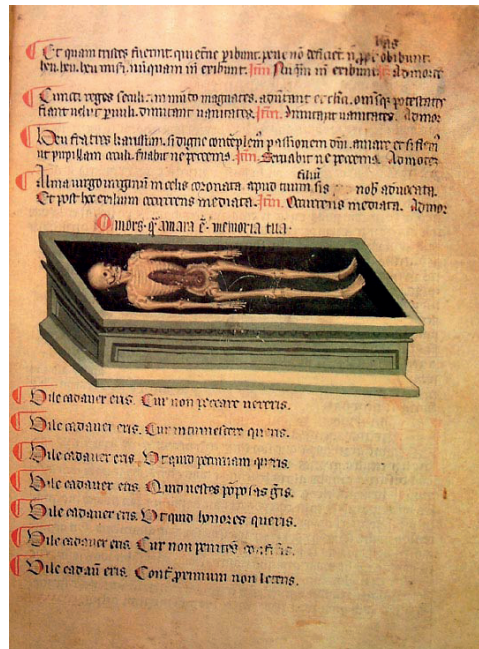 Et quam tristes fuerint qui eterne pibunt. pene nō deficiēt n̄ ꝓpt̄ obibunt.
heu. heu. heu miseri. nūquam in exibunt. Itm̄ Nūqm̄ in exibunt. Ad morte
Cuncti reges seculi. in mūdo magnates. aduertant et clici. omēsq potestates
fiant uelut puuli. dimitant uanitates. Itm̄. Dimitant uanitates. Ad mor
Heu fratres karissimi. si digne contēplem᷒ passionem dn̄i. amare et si flem᷒
ut pupillam oculi. ſuabit ne peccem᷒. Itm̄. Seruabit ne peccem᷒. Ad morte
Alma uirgo uirginū in celis coronata. apud tuum filiū sis nob aduocata.
Et post hoc exilium occurrens mediata. Itm̄. Occurrens mediata. Ad mor
O mors. q̄ amara ē. memoria tua.
Vile cadauer eris. Cur non peccare uereris.
Vile cadauer eris. Cur intumescere queris.
Vile cadauer eris. Vt quid pecuniam queris.
Vile cadauer eris. Quid uestes pōposas g̃is.
Vile cadauer eris. Vt quid honores queris.
Vile cadauer eris. Cur non penitēs
Vile cadau̅ eris. Cont̄ primum non leteris.